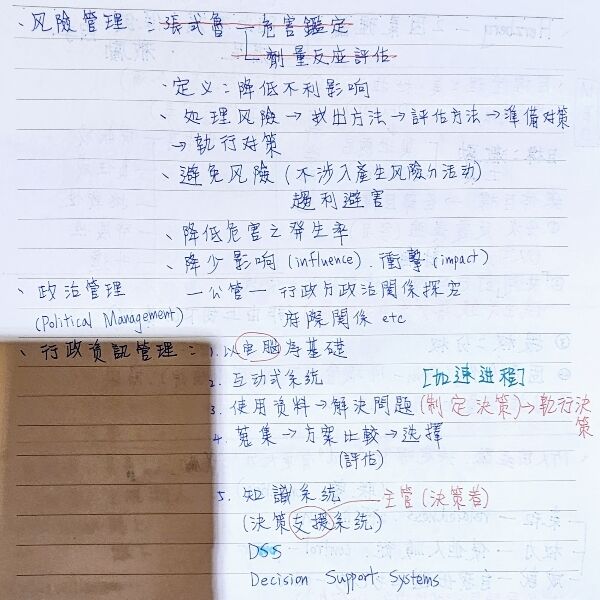 、风險管理：張式魯一危害鑑定
劑量反应評估
、定义：降低不利影响
、处理风險→找出方法→評估方法→準備对策
→執行对策
、避免风險(不涉入產生风險的活动)
趨利避害
、降低危害之發生率
、降少影响(influence)、衝擊(impact)
、政治管理 一公管一行政与政治關係探究
(Political Management) 府際関係 etc
、行政資訊管理：1.以电脑為基礎
2. 互动式系統 [加速进程]
3. 使用资料→解決問題(制定決策)→執行決策
4. 蒐集→方案比較→选擇
(評估)
5. 知識系統 主管(決策者)
(決策支援系統)
DSS
Decision Support Systems